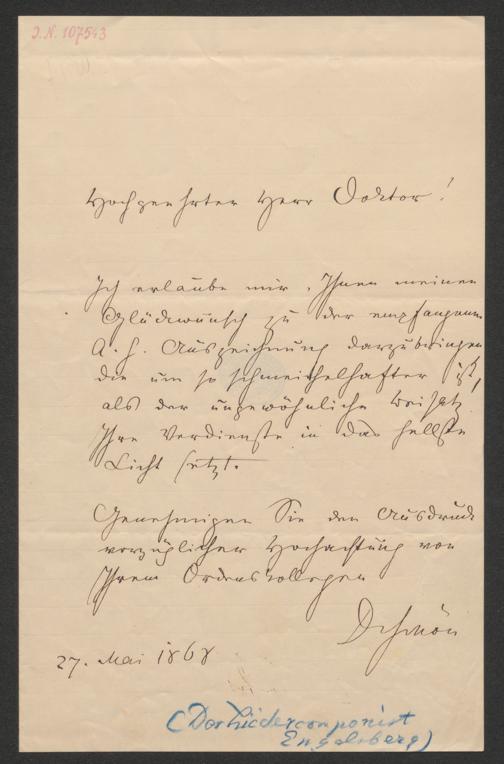 I.N. 107543
Hochgeehrter Herr Doktor!
Ich erlaube mir, Ihnen meinen
Glückwunsch zu der empfangenen
A. h. Auszeichnung darzubringen
die um so schmeichelhafter ist,
als der ungewöhnliche Beisatz
Ihre Verdienste in das hellste
Licht setzt.
Genehmigen Sie den Ausdruck
vorzüglicher Hochachtung von
Ihrem Ordenskollegen
DrSchön
27. Mai 1868
(Der Liedercomponist
Engelsberg)